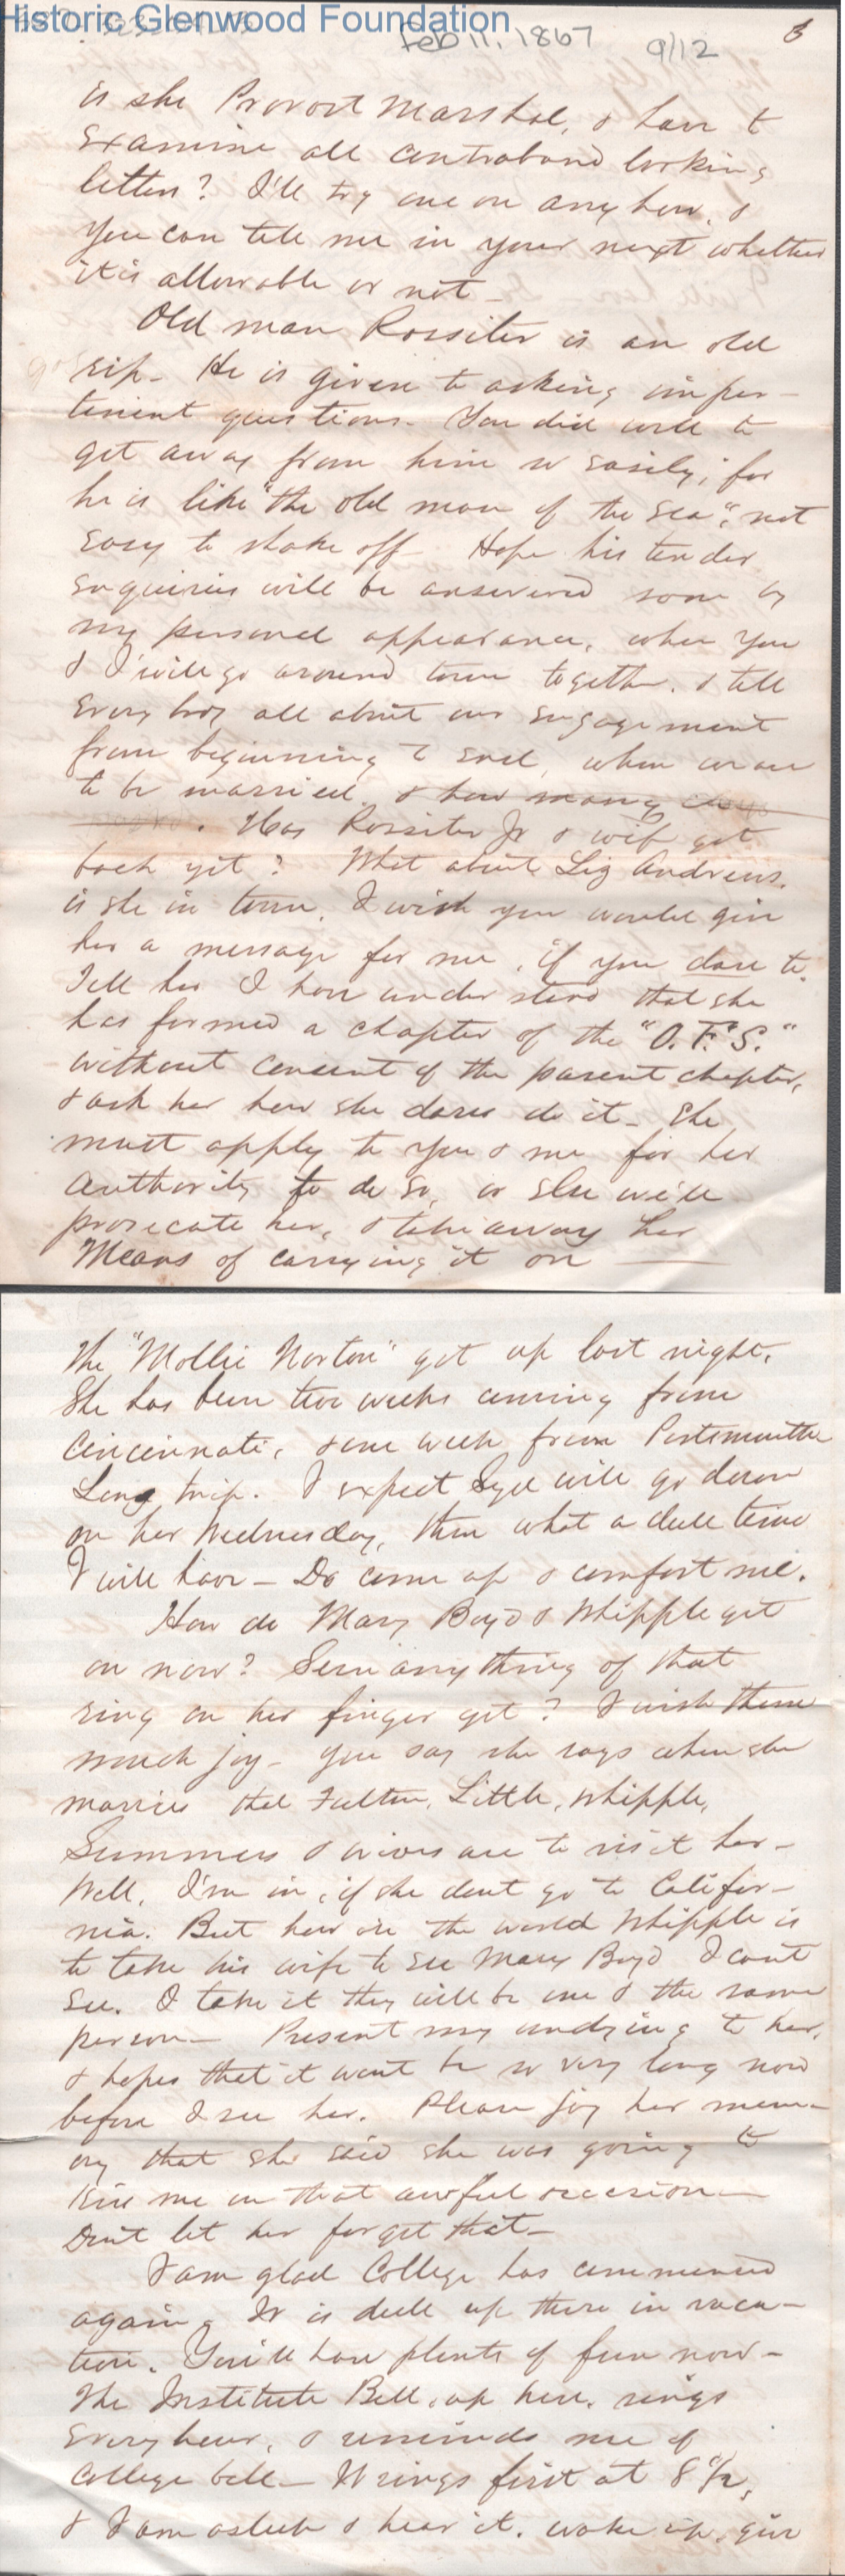 Historic Glenwood Foundation
Feb 11, 1867 9/12 3
is she Provost Marshal, & have to
examine all contraband looking
letters? I'll try one on any how, &
you can tell me in your next whether
it is allowable or not -
Old man Rossiter is an old
rip - He is given to asking imper-
tinent questions. You did well to
get away from him so easily; for
he is like "the old man of the sea", not
easy to shake off - Hope his tender
enquiries will be answered soon by
my personal appearance, when you
& I will go around town together, & tell
every body all about our engagement
from beginning to end, when we are
to be married, & how many
. Has Rossiter Jr & wife got
back yet? What about Liz Andrews,
is she in town, I wish you would give
her a message for me, if you dare to.
Tell her I have understood that she
has formed a chapter of the "O.F.S."
without consent of the parent chapter,
& ask her how she dares do it - She
must apply to you & me for her
authority to do so, or else we'll
prosecute her, & take away her
Means of carrying it on
The "Mollie Norton" got up last night,
She has been two weeks coming from
Cincinnati, & one week from Portsmouth
Long trip. I expect will go down
on her Wednesday, then what a dull time
I will have - Do come up & comfort me.
How do Mary Boyd & Whipple get
on now? Seen anything of that
ring on her finger yet? I wish them
much joy - You say she says when she
marries that Fulton, Little, Whipple,
Summers & wives are to visit her -
Well, I'm in, if she dont go to Califor-
nia. But how in the world Whipple is
to take his wife to see Mary Boyd I cant
see. I take it they will be one & the same
person - Present my undying to her,
& hopes that it wont be so very long now
before I see her. Please jog her mem-
ory that she said she was going to
kiss me on that awful occasion -
Dont let her forget that -
I am glad College has commenced
again. It is dull up there in vaca-
tion. You'll have plenty of fun now -
The Institute Bell, up here, rings
every hour, & reminds me of
College bell - It rings first at 8 1/2,
& I am asleep & hear it, wake up, give